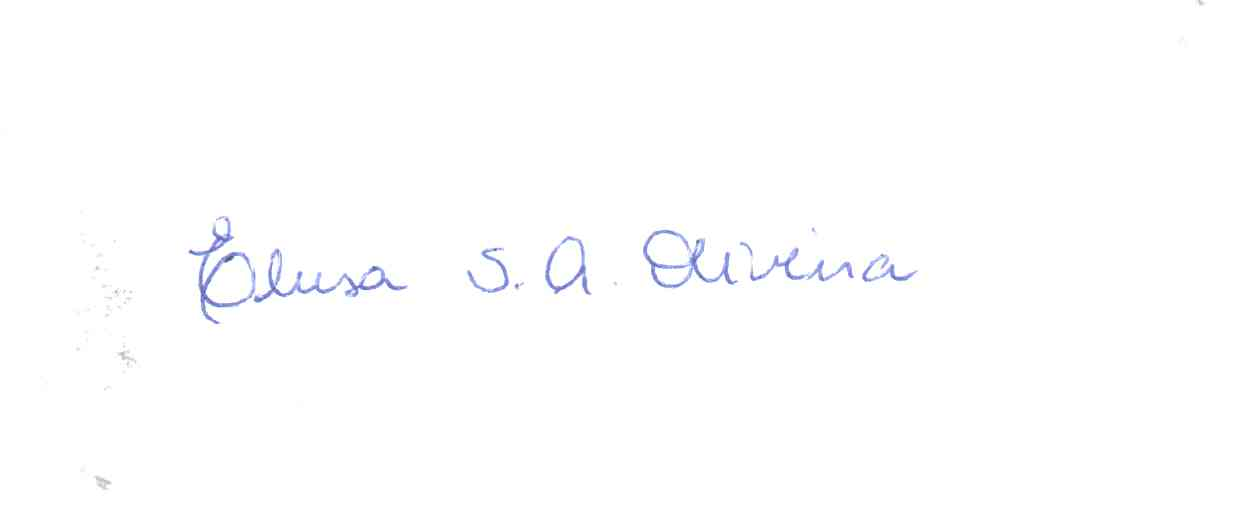 Elusa S. A. Oliveira